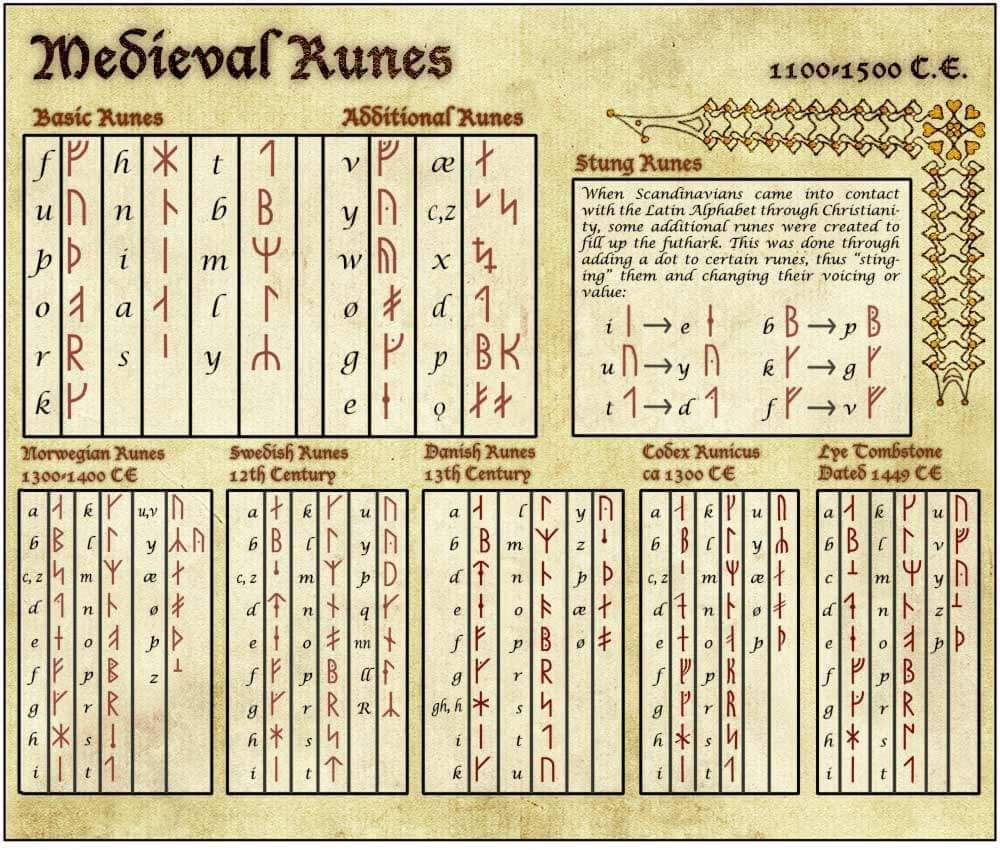 Medieval Runes
1100-1500 C.E.
Basic Runes
f ᚠ h ᚼ t ᛐ
u ᚢ n ᚿ b ᛒ
þ ᚦ i ᛁ m ᛘ
o ᚮ a ᛆ l ᛚ
r ᚱ s ᛌ y ᛦ
k ᚴ
Additional Runes
v ᚡ æ ᛅ
y ᚤ c,z ᛋ
w ᚥ x ᛪ
ø ᚯ d ᛑ
g ᚵ p ᛔ ᛕ
e ᛂ ǫ ᚯ
Stung Runes
When Scandinavians came into contact
with the Latin Alphabet through Christiani-
ty, some additional runes were created to
fill up the futhark. This was done through
adding a dot to certain runes, thus "sting-
ing" them and changing their voicing or
value:
i ᛁ → e ᛂ b ᛒ → p ᛔ
u ᚢ → y ᚤ k ᚴ → g ᚵ
t ᛐ → d ᛑ f ᚠ → v ᚡ
Norwegian Runes
1300-1400 CE
a ᛆ k ᚴ u,v ᚢ
b ᛒ l ᛚ y ᛦ ᚤ
c, z ᛋ m ᛉ æ ᛅ
d ᛑ n ᚿ ø ᚯ
e ᛂ o ᚮ þ ᚦ
f ᚠ p ᛔ z
g ᚵ r ᚱ
h ᚼ s
i ᛁ t ᛐ
Swedish Runes
12th Century
a ᛅ k ᚴ u ᚢ
b ᛒ l ᛚ y ᚤ
c, z m ᛉ þ ᚦ
d n ᚾ q
e ᛂ o ᚯ nn
f ᚠ p ᛔ ll
g ᚵ r ᚱ R ᛣ
h ᚼ s ᛋ
i ᛁ t ᛏ
Danish Runes
13th Century
a ᛆ l ᛚ y ᚤ
b ᛒ m ᛉ z
d n ᚿ þ ᚦ
e ᛂ o ᚮ æ ᛅ
f ᚠ p ᛔ ø ᚯ
g ᚵ r ᚱ
gh, h ᚼ s ᛋ
i ᛁ t ᛐ
k ᚴ u ᚢ
Codex Runicus
ca 1300 CE
a ᛆ k ᚴ u ᚢ
b ᛒ l ᛚ y ᛦ
c, z ᛌ m ᛘ æ ᛅ
d n ᚿ ø ᚯ
e ᛂ o ᚮ þ ᚦ
f ᚠ p ᛕ
g ᚵ r ᚱ
h ᚼ s ᛋ
i ᛁ t ᛐ
Lye Tombstone
Dated 1449 CE
a ᛆ k ᚴ u ᚢ
b ᛒ l ᛚ v ᚡ
c m ᛘ y ᚤ
d ᛑ n ᚿ z
e ᛂ o ᚮ þ ᚦ
f ᚠ p ᛔ
g ᚵ r ᚱ
h ᚼ s
i ᛁ t ᛐ